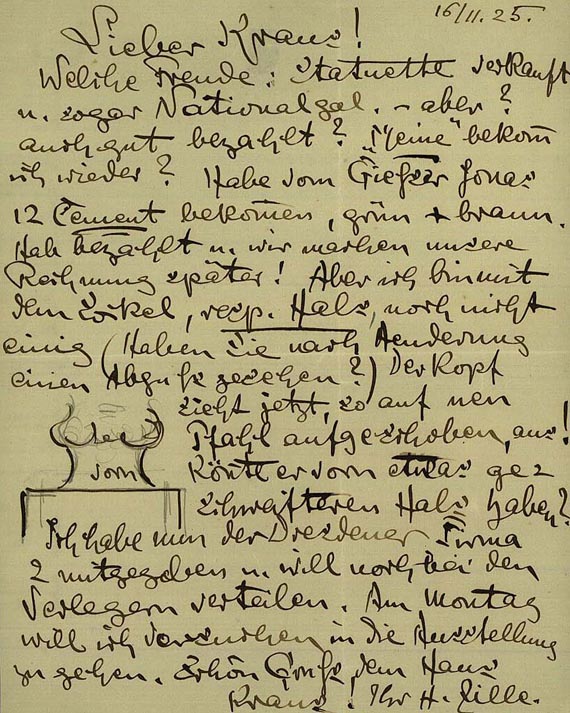 16/11. 25.
Lieber Kraus!
Welche Freude: Statuette verkauft
u. sogar Nationalgal. - aber?
auch gut bezahlt? "Meine" bekom̅
ich wieder? Habe vom Gießer Jonas
12 Cement bekom̅en, grün + braun.
Hab bezahlt u. wir machen unsere
Rechnung später! Aber ich bin mit
dem Sockel, resp. Hals, noch nicht
einig (Haben Sie nach Aenderung
einen Abguß gesehen?) Der Kopf
sieht jetzt, so auf nen
Pfahl aufgeschoben, aus!
vorn
Kön̅te er vorn etwas ge=
schweifteren Hals haben?
Ich habe nun der Dresdener Firma
2 mitgegeben u. will noch bei den
Verlegern verteilen. Am Montag
will ich versuchen in die Ausstellung
zu gehen. Schön Gruß dem Haus
Kraus! Ihr H. Zille.